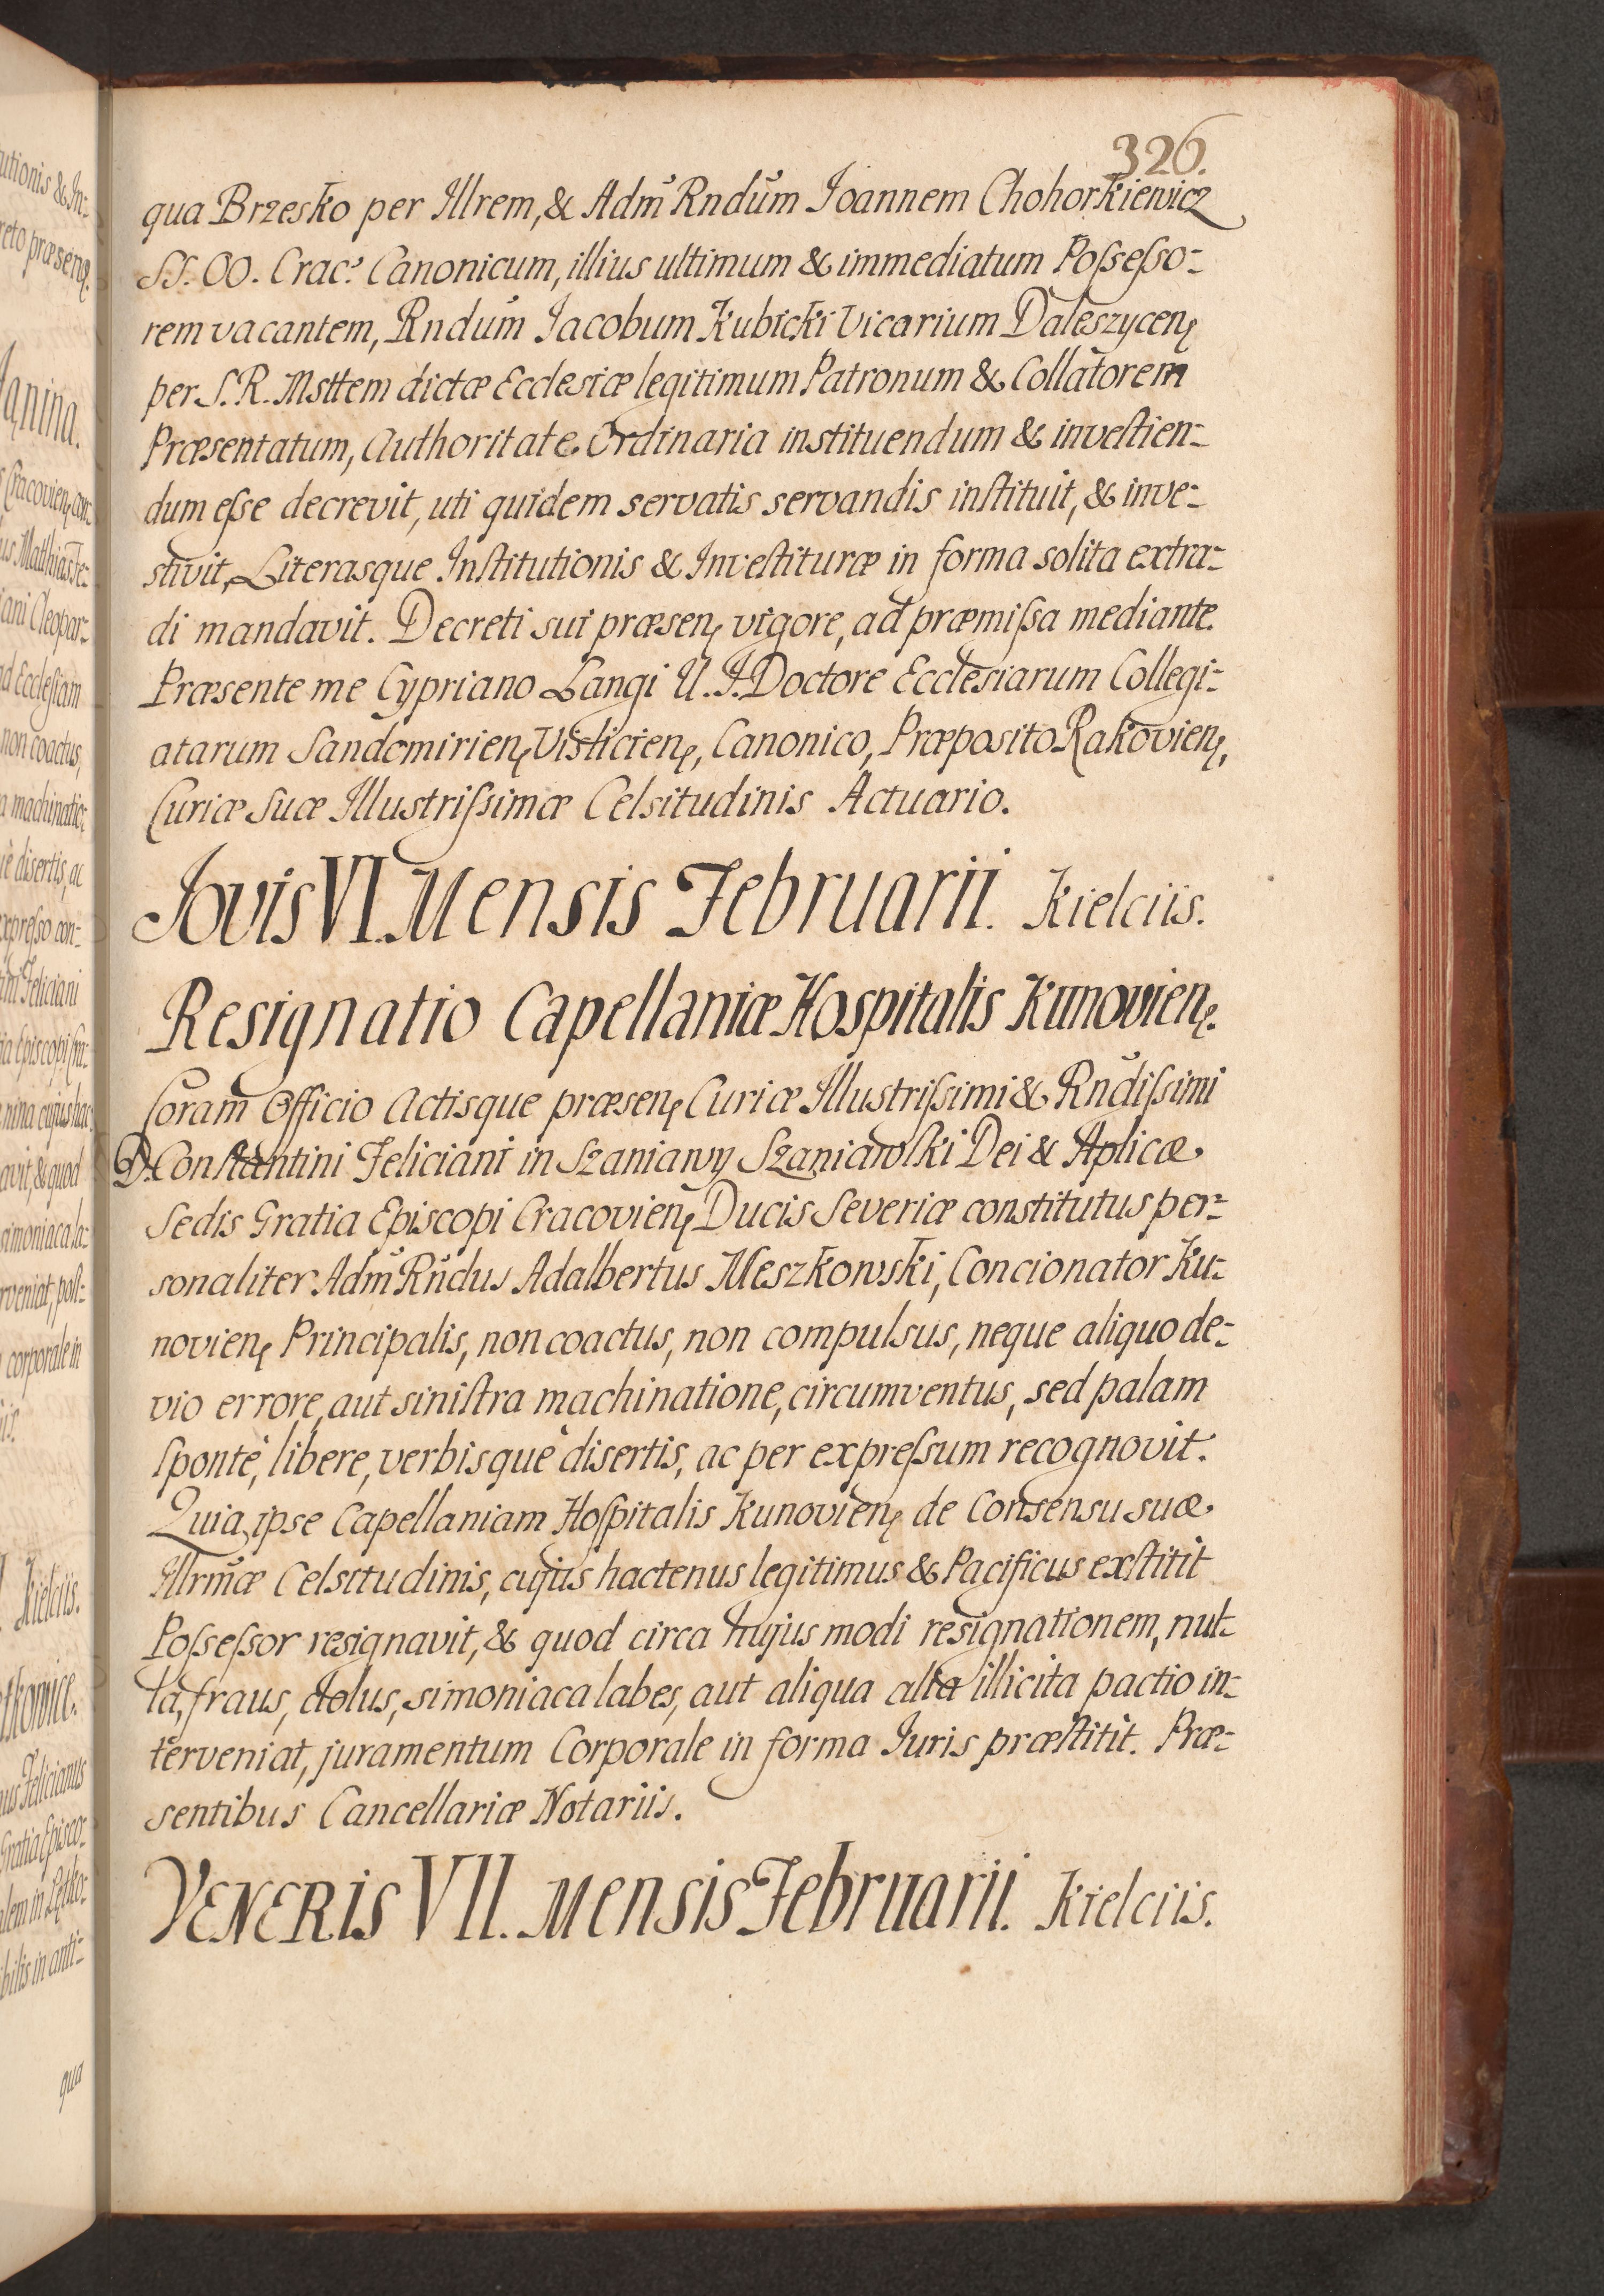 326.
qua Brzesko per Illrem, & Adm̃ Rndũm Ioannem Chohorkiewicz
SS. OO. Crac? Canonicum, illius ultimum & immediatum Poſseſso-
rem vacantem, Rndũm Iacobum Kubicki Vicarium Daleszycenę
per S. R. Msttem dictæ Ecclesiæ legitimum Patronum & Collatorem
Præsentatum, Authoritate Ordinaria instituendum & inveſtien-
dum eſse decrevit, uti quidem servatis servandis inſtituit, & inve-
stivit, Literasque Inſtitutionis & Inveſtituræ in forma solita extra-
di mandavit. Decreti sui præsenę vigore, ad præmiſsa mediante.
Præsente me Cypriano Langi U. I. Doctore Ecclesiarum Collegi-
atarum Sandomirienę Visticienę, Canonico, Præposito Rakovienę,
Curiæ Suæ Illustriſsimæ Celsitudinis Actuario.
Jovis VI. Mensis Februarii. Kielciis.
Resignatio Capellaniæ Hospitalis Kunovienę.
Coram Officio Actisque præsenę Curiæ Illustriſsimi & Rndiſsimi
D. Conſtantini Feliciani in Szaniawy Szaniawſki Dei & Aplicæ
Sedis Gratia Episcopi Cracovienę Ducis Severiæ constitutus per-
sonaliter Adm̃ Rñdus Adalbertus Meszkowski, Concionator Ku-
novienę Principalis, non coactus, non compulsus, neque aliquo de-
vio errore, aut siniſtra machinatione, circumventus, sed palam
ſpontè, libere, verbisquè disertis, ac per expreſsum recognovit.
Quia ipse Capellaniam Hoſpitalis Kunovienę de Consensu suæ
Illrm̃æ Celsitudinis, cujus hactenus legitimus & Pacificus exſtitit
Poſseſsor resignavit, & quod circa hujus modi resignationem, nul-
la, fraus, dolus, simoniaca labes, aut aliqua alia illicita pactio in-
terveniat, juramentum Corporale in forma Iuris præſtitit. Præ-
sentibus Cancellariæ Notariis.
VENERis VII. Mensis Februarii. Kielciis.